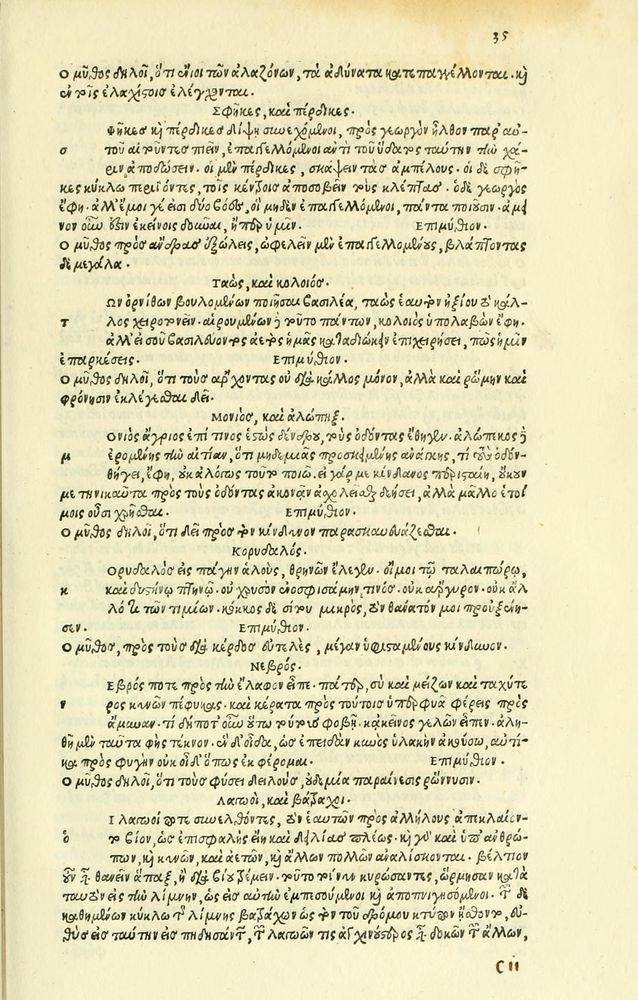 35
Ο μῦθος δηλοῖ, ὅτι ἔνιοι τῶν ἀλαζόνων, τὰ ἀδύνατα κατεπαγγέλλονται. καὶ
ἐν τοῖς ἐλαχίστοις ἐλέγχονται.
Σφῆκες, καὶ πέρδικες.
Φῆκες καὶ πέρδικες δίψῃ συνεχόμενοι, πρὸς γεωργὸν ἦλθον παρ' αὐ-
σ τοῦ αἰτοῦντες πιεῖν, ἐπαγγελλόμενοι ἀντὶ τοῦ ὕδατος ταύτην τὴν χά-
ριν ἀποδώσειν. οἱ μὲν πέρδικες, σκάψειν τὰς ἀμπέλους. οἱ δὲ σφῆ-
κες κύκλῳ περιιόντες, τοῖς κέντροις ἀποσοβεῖν τοὺς κλέπτας. ὁ δὲ γεωργὸς
ἔφη. ἀλλ' ἔμοιγέ εἰσι δύο βόες, οἳ μηδὲν ἐπαγγελλόμενοι, πάντα ποιοῦσιν. ἄμει
νον οὖν ἐστὶν ἐκείνοις δοῦναι, ἤπερ ὑμῖν. Επιμύθιον.
Ο μῦθος πρὸς ἄνδρας ἐξώλεις, ὠφελεῖν μὲν ἐπαγγελλομένους, βλάπτοντας
δὲ μεγάλα.
Ταὼς, καὶ κολοιός.
Ων ὀρνίθων βουλομένων ποιῆσαι βασιλέα, ταὼς ἑαυτὸν ἠξίου διὰ κάλ-
τ λος χειροτονεῖν. αἱρουμένων δὲ τοῦτο πάντων, κολοιὸς ὑπολαβὼν ἔφη.
ἀλλ' εἰ σοῦ βασιλεύοντος ἀετὸς ἡμᾶς καταδιώκειν ἐπιχειρήσει, πῶς ἡμῖν
ἐπαρκέσεις. Επιμύθιον.
Ο μῦθος δηλοῖ, ὅτι τοὺς ἄρχοντας οὐ διὰ κάλλος μόνον, ἀλλὰ καὶ ῥώμην καὶ
φρόνησιν ἐκλέγεσθαι δεῖ.
Μονιὸς, καὶ ἀλώπηξ.
Ονιὸς ἄγριος ἐπί τινος ἑστὼς δένδρου, τοὺς ὀδόντας ἔθηγεν. ἀλώπεκος δὲ
μ ἐρομένης τὴν αἰτίαν, ὅτι μηδεμιᾶς προσκειμένης ἀνάγκης, τί τοὺς ὀδόν-
θήγει, ἔφη, οὐκ ἀλόγως τοῦτο ποιῶ. εἰ γάρ με κίνδυνος περισταίη, οὐκουν
με τηνικαῦτα πρὸς τοὺς ὀδόντας ἀκονᾶν ἀσχολεῖσθαι δεήσει, ἀλλὰ μᾶλλον ἑτοί
μοις οὖσι χρῆσθαι. Επιμύθιον.
Ο μῦθος δηλοῖ, ὅτι δεῖ πρὸς τὸν κίνδυνον παρασκευάζεσθαι.
Κορυδαλός.
Ορυδαλὸς εἰς πάγην ἁλοὺς, θρηνῶν ἔλεγεν. οἴμοι τῷ ταλαιπώρῳ,
κ καὶ δυστήνῳ πτηνῷ. οὐ χρυσὸν ἐνοσφισάμην τινός. οὐκ ἄργυρον. οὐκ ἄλ
λό τι τῶν τιμίων. κόκκος δὲ σίτου μικρὸς, τὸν θάνατόν μοι προὐξένη-
σεν. Επιμύθιον.
Ο μῦθος, πρὸς τοὺς διὰ κέρδος εὐτελὲς, μέγαν ὑφισταμένους κίνδυνον.
Νεβρός.
Εβρός ποτε πρὸς τὴν ἔλαφον εἶπε. πάτερ, σὺ καὶ μείζων καὶ ταχύτε
ν ρος κυνῶν πέφυκας. καὶ κέρατα πρὸς τούτοις ὑπερφυᾶ φέρεις πρὸς
ἄμυναν. τί δήποτ' οὖν οὕτω τούτους φοβῇ. κἀκεῖνος γελῶν εἶπεν. ἀλη-
θῆ μὲν ταῦτα φῂς τέκνον. ἓν δ' οἶδα, ὡς ἐπειδὰν κυνὸς ὑλακὴν ἀκούσω, αὐτί-
κα πρὸς φυγὴν οὐκ οἶδ' ὅπως ἐκφέρομαι. Επιμύθιον.
Ο μῦθος δηλοῖ, ὅτι τοὺς φύσει δειλοὺς, οὐδεμία παραίνεσις ῥώννυσιν.
Λαγωοὶ, καὶ βάτραχοι.
Ι λαγωοί ποτε συνελθόντες, τὸν ἑαυτῶν πρὸς ἀλλήλους ἀπεκλαίον-
ὁ το βίον, ὡς ἐπισφαλὴς εἴη καὶ δειλίας πλέως. καὶ γὰρ καὶ ὑπ' ἀνθρώ-
πων, καὶ κυνῶν, καὶ ἀετῶν, καὶ ἄλλων πολλῶν ἀναλίσκονται. βέλτιον
οὖν εἶναι θανεῖν ἅπαξ, ἢ διὰ βίου τρέμειν. τοῦτο τοίνυν κυρώσαντες, ὥρμησαν κατὰ
ταυτὸν εἰς τὴν λίμνην, ὡς εἰς αὐτὴν ἐμπεσούμενοι καὶ ἀποπνιγησόμενοι. τῶν δὲ
καθημένων κύκλῳ τῆς λίμνης βατράχων ὡς τὸν τοῦ δρόμου κτύπον ᾔσθοντο, εὐ-
θὺς εἰς ταύτην εἰσπηδησάντων, τῶν λαγωῶν τις ἀγχινούστερος εἶναι δοκῶν τῶν ἄλλων,
C ii